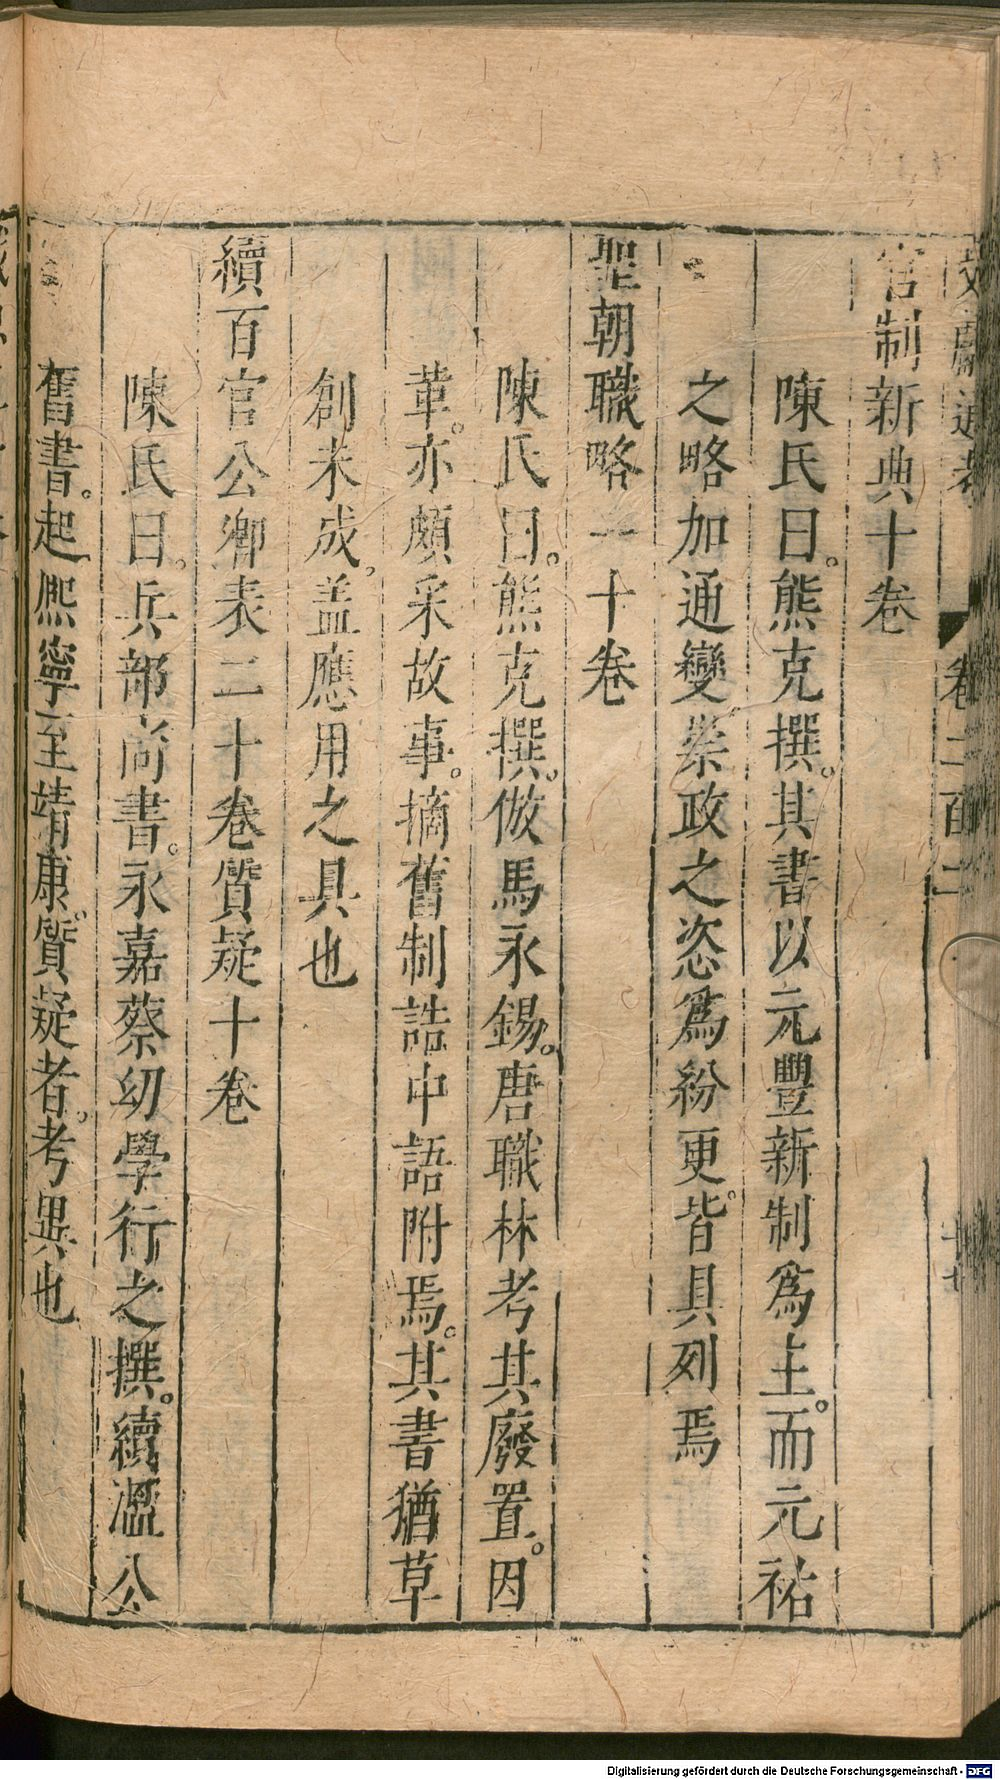 文獻通考 卷二百二 十七
官制新典十卷
陳氏曰。熊克撰。其書以元豐新制爲主。而元祐
之略加通變。崇政之恣爲紛更。皆具列焉
聖朝職略二十卷
陳氏曰。熊克撰。倣馬永錫。唐職林考其廢置。因
革。亦頗采故事。摘舊制誥中語附焉。其書猶草
創未成。盖應用之具也
續百官公卿表二十卷質疑十卷
陳氏曰。兵部尚書。永嘉蔡幼學行之撰。續溫公
舊書。起熈寧至靖康。質疑者。考異也
Digitalisierung gefördert durch die Deutsche Forschungsgemeinschaft - DFG